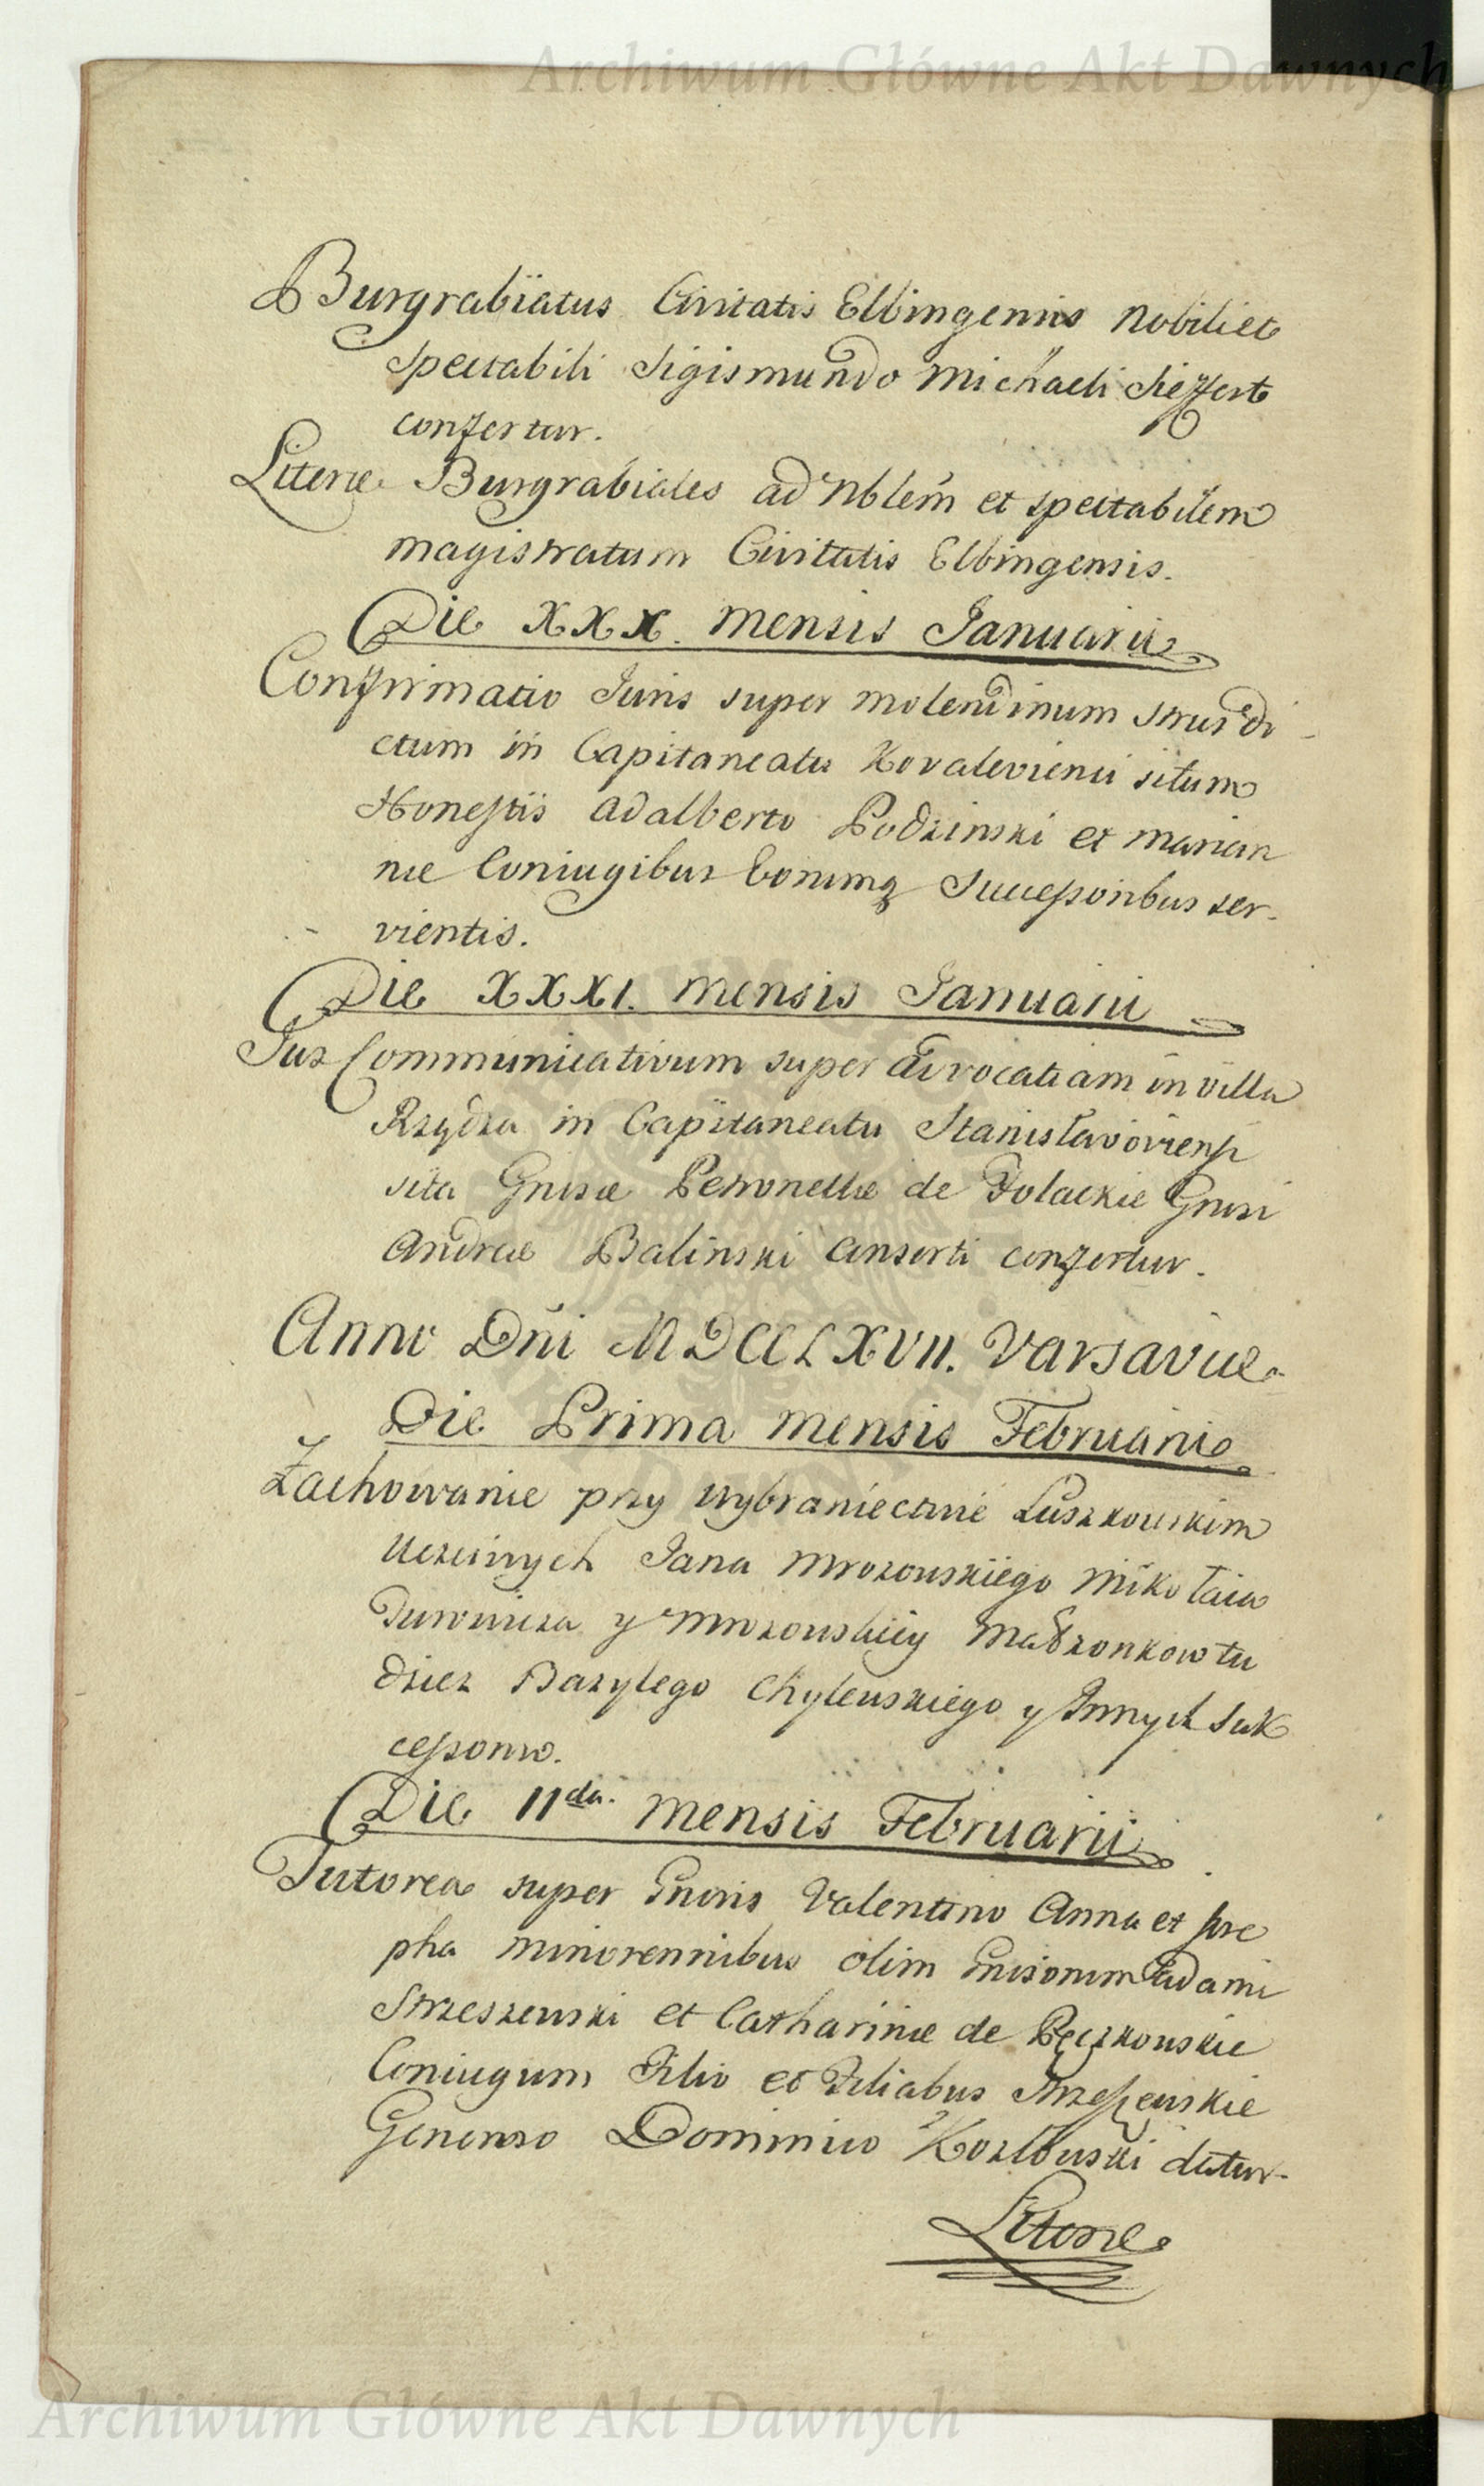 Archiwum Główne Akt Dawnych
Burgrabiatus Civitatis Elbingensis Nobili et
Spectabili Sigismundo Michaeli Sieffert
confertur.
Literæ Burgrabiales ad Nblem et spectabilem
Magistratum Civitatis Elbingensis.
Die XXX. Mensis Januarii
Confirmatio Juris super molendinum Strus di-
ctum in Capitaneatu Kovaleviensi situm
Honestis Adalberto Rodzinski et Marian
næ Coniugibus Eorumq Successoribus ser-
vientis.
Die XXXI. Mensis Januarii
Jus Communicativum super Advocatiam in Villa
Rządza in Capitaneatu Stanislavoviensi
sita Gnisæ Petronellæ de Polackie Gnisi
Andreæ Balinski Consorti confertur.
Anno Dni MDCCLXVII. Varsaviæ
Die Prima Mensis Februarii
Zachowanie przy Wybraniectwie Luszkowskim
Uczciwych Jana Mrozowskiego Mikołaia
y Mrozowskiey Małżonkow tu
dziez Bazylego Chylewskiego y Innych Suk
cessorow.
Die IIda. Mensis Februarii
Tutorea super Gnosis Valentino Anna et Jose
pha minorennibus olim Gnisorum Adami
Strzeszewski et Catharinæ de Pęczkowskie
Coniugum Filio et Filiabus Strzeszewskie
Generoso Dominico Kozłowski datur.
Literæ
Archiwum Główne Akt Dawnych